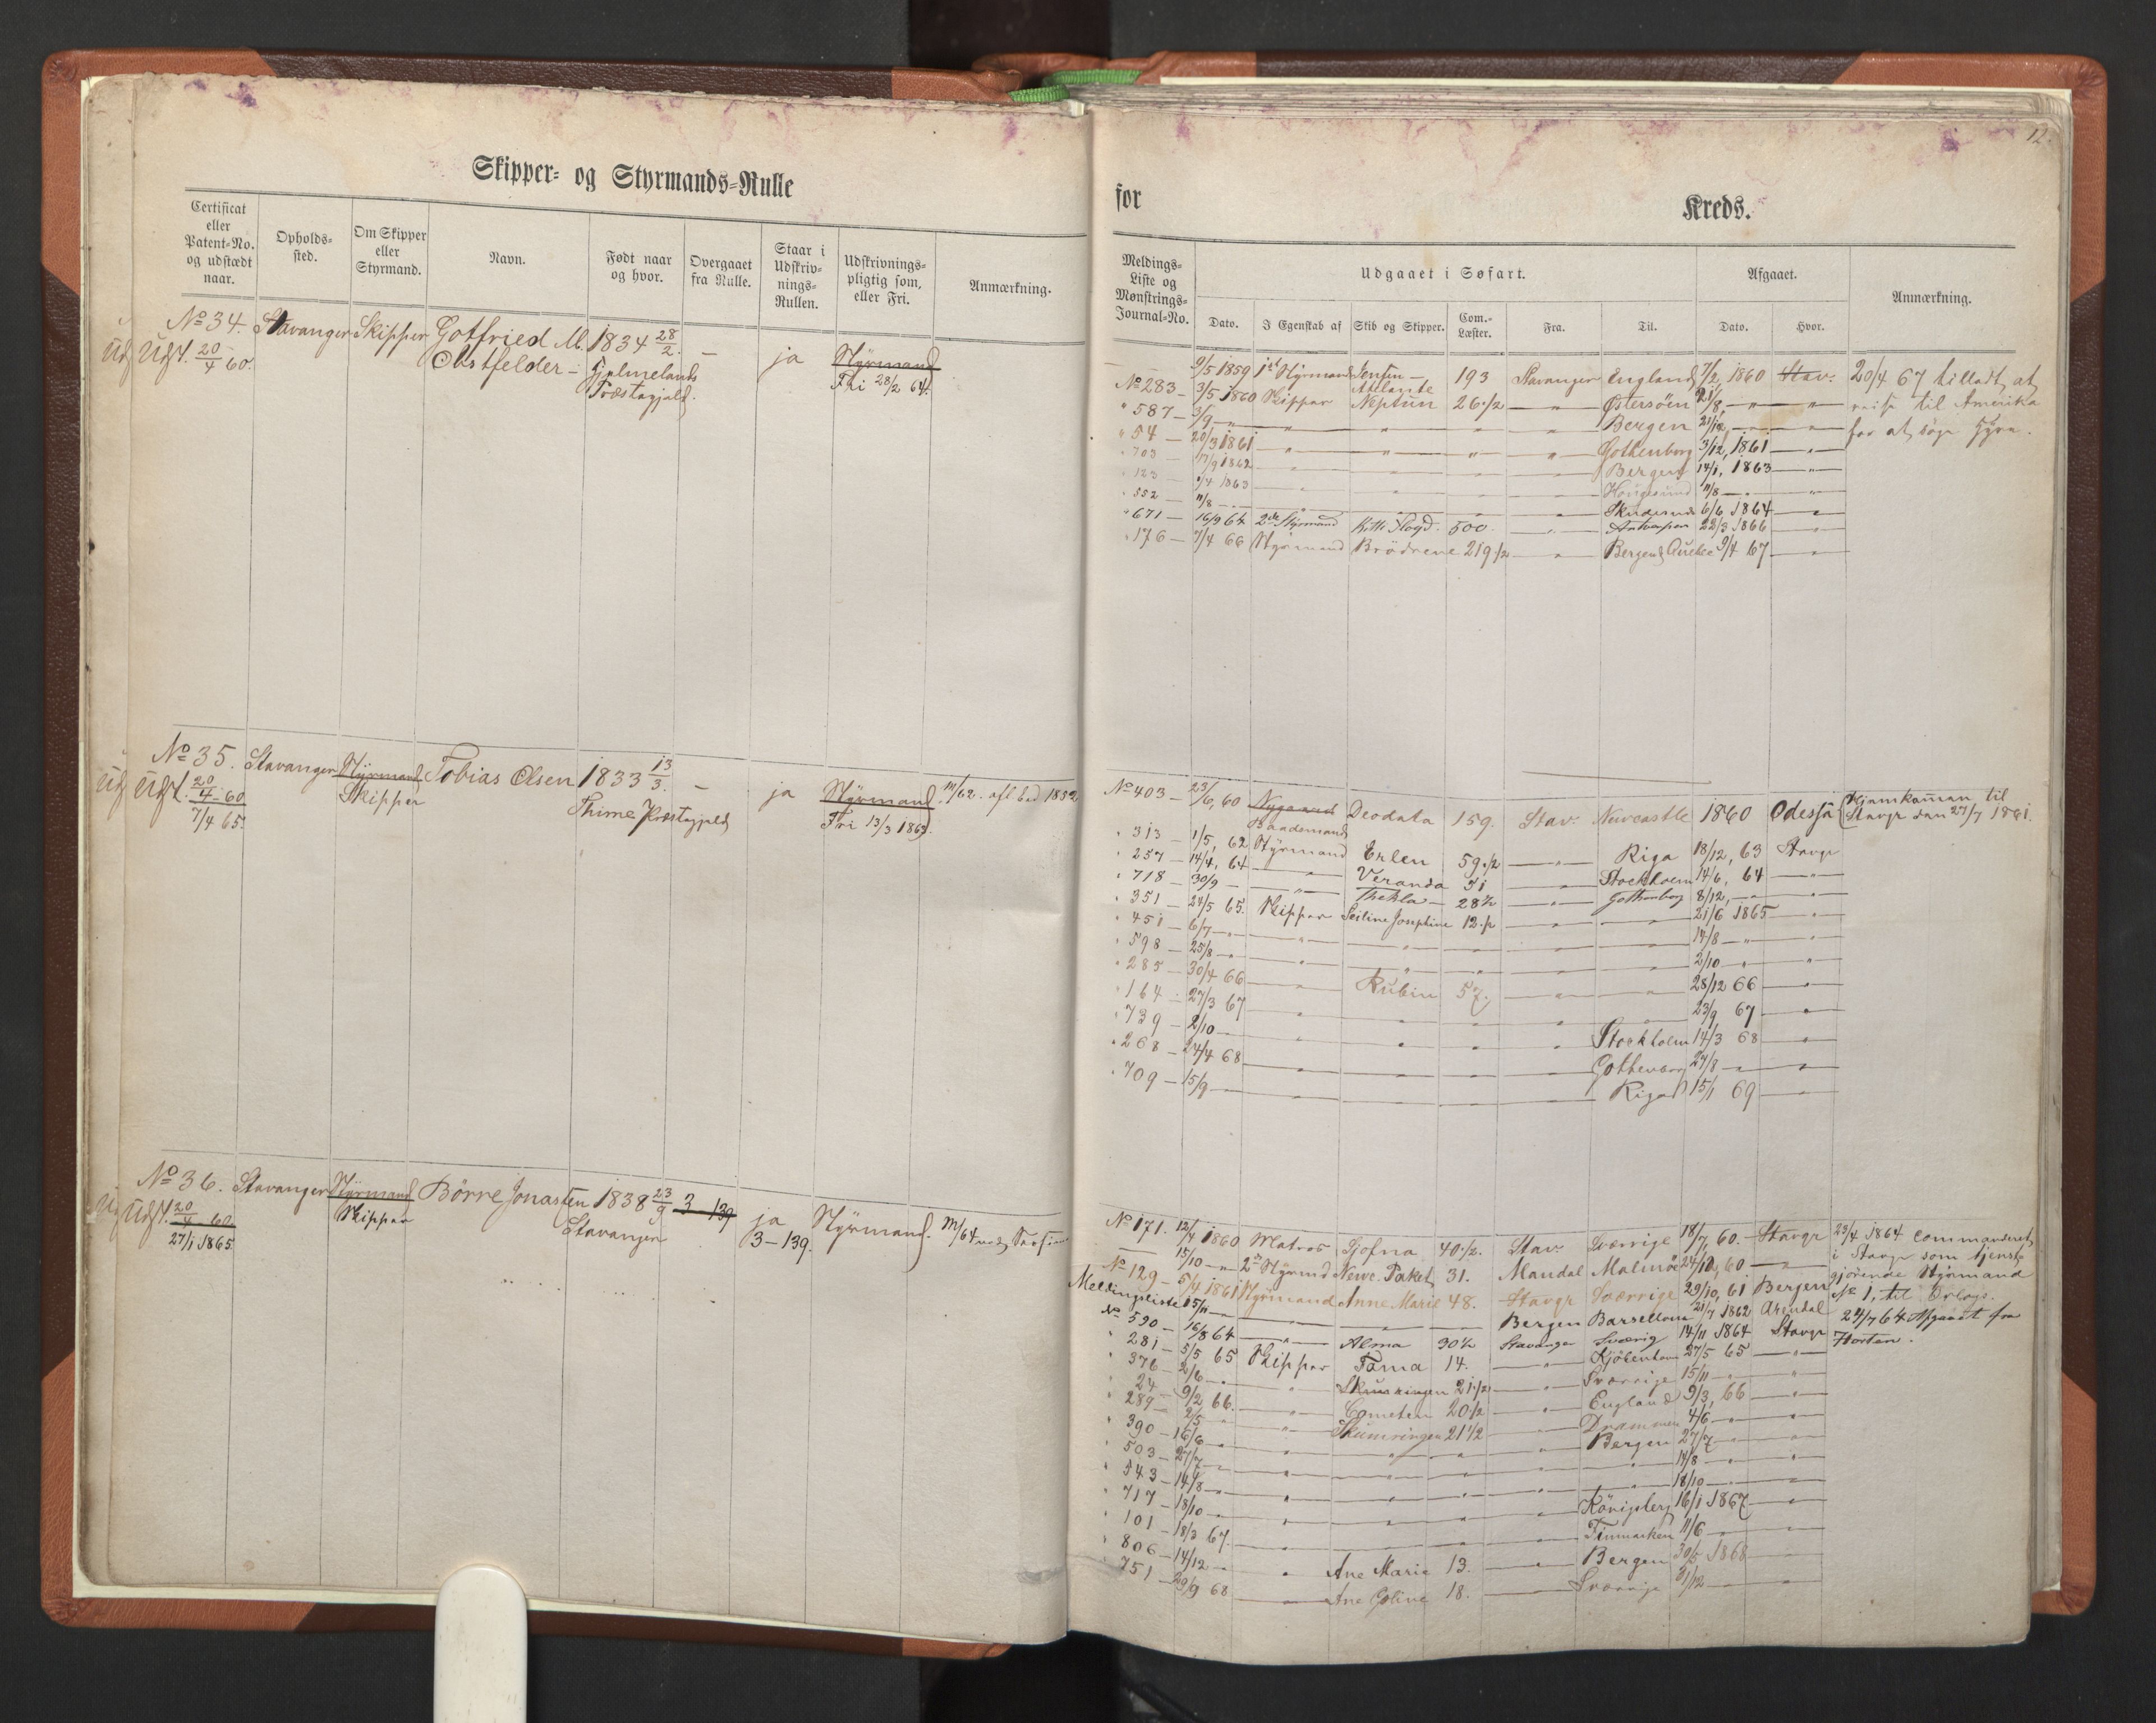 Skipper- og Styrmands-Rulle
Certificat eller Patent-No. og udstædt naar.
Opholds-sted.
Om Skipper eller Styrmand.
Navn.
Født naar og hvor.
Overgaaet fra Rulle.
Staar i Udskriv-nings-Rullen.
Udskrivnings-pligtig som, eller Fri.
Anmærkning.
No 34. Stavanger Skipper Gotfried M. 1834 28/2. — ja Styrmand
Udst. 20/4 60. Obstfelder — Hjelmelands Fri 28/2 64.
Præstegjeld.
No 35. Stavanger Styrmand Tobias Olsen 1833 13/3. — ja Styrmand. m/62. afl. Ed 1852
Udst. 20/4 60 Skipper Thime Præstegjeld Fri 13/3 1863.
7/4 65.
No 36. Stavanger Styrmand Börre Jonassen 1838 23/9 3—139 ja Styrmand. m/64
Udst. 20/4 60. Skipper Stavanger 3—139.
27/1 1865.
12.
for
Kreds.
Meldings-Liste og Mønstrings-Journal-No.
Udgaaet i Søfart.
Afgaaet.
Anmærkning.
Dato.
I Egenskab af
Skib og Skipper.
Com.-Læster.
Fra.
Til.
Dato.
Hvor.
— 9/5 1859 1ste Styrmand 193 Stavanger England 7/2, 1860 Stav. 20/4 67 tilladt at
No 283 — 3/5 1860 Skipper Neptun 26 1/2 — " — Østersöen 21/8, — " — " reise til Amerika
" 587 — 3/9 — " " " " Bergen 21/12, — " for at söge Hyre.
" 54 — 20/3 1861 " " " " Gothenborg 3/12, 1861 — "
" 703 — 17/9 1862 Bergen 14/1, 1863 — "
" 123 — 1/4 1863 Haugesund 11/8 — "
" 552 — 11/8 — Skudesnes 6/6 1864 — "
" 671 — 16/9 64 2de Styrmand 500. — " — Antverpen 22/3 1866 — "
" 176 — 7/4 66 Styrmand Brödrene 219 1/2 — " — Bergen & Quebec 9/4 67 — "
No 403 — 23/6, 60 Deodata 159. Stav. Newcastle 1860 Odessa Hjemkommen til
Baadsmand Stavgr den 27/7 1861.
" 313 — 1/5, 62 Styrmand Erlen 59 1/2 — " — Riga 18/12, 63 Stavgr
" 257 — 14/4, 64 — " — Veranda 51 — " — Stockholm 14/6, 64 — " —
" 718 — 30/9 — — " — Thekla — 28 1/2 — " — Gothenborg 8/12, — " — "
" 351 — 24/5 65. Skipper Seiline Josephine 12 1/2 — " — 21/6 1865 — "
" 451 — 6/7 — " — 14/8 — " — "
" 598 — 25/8 — " — 2/10 — " — "
" 285 — 30/4 66 — " — Rubin 57. — " — 28/12 66 — "
" 164 — 27/3 67 — " — 23/9 67 — "
" 739 — 2/10 — " — Stockholm 14/3 68 — "
" 268 — 24/4 68 — " — Gothenborg 24/8 — " — "
" 709 — 15/9 — " — Riga 15/1 69 — "
No 171. 12/4 1860 Matros Sjofna 40 1/2. Stav. Sverrige 18/7, 60. Stavgr 23/4 1864 commanderet
15/10 — " 2den Styrmd Newc. Paket 31. Mandal Malmöe 24/10, 60 — " — i Stavgr som tjenst-
No 129 — 5/4 1861 Styrmand Anne Marie 48. Stavgr Sværrige 29/10, 61 Bergen gjörende Styrmand
Meldingsliste 15/11 — " — Bergen Barsellona 21/7 1862 Arendal No 1, til Orlogs.
No 590 — 16/8 64 — " — Alma 30 1/2 Stavanger Sverrig 14/11 1864 Stavgr 24/7 64 Afgaaet fra
" 281 — 5/5 65 Skipper Fama 14. — " — Kjöbenhavn 27/5 65 — " — Horten.
" 376 — 2/6 — " — Skumringen 21 1/2 — " — Sverrige 15/11 — " — "
" 24 — 9/2 66. — " — Cometen 20 1/2 — " — England 9/3, 66 — "
" 289 — 2/5 " — " — Skumringen 21 1/2 — Drammen 4/6 — " — "
" 390 — 16/6 — " — Bergen 27/7 — " — "
" 503 — 27/7 — " — 14/8 — " — "
" 543 — 14/8 — " — 18/10 — " — "
" 717 — 18/10 — " — Königsberg 16/1 1867 — "
" 101 — 18/3 67. — " — Finmarken 11/6 — "
" 806 — 14/12 — " Ane Marie 13. — " — Bergen 30/5 1868 —
" 751 — 29/9 68. — " — 18. — " — Sverrige 31/12 — "